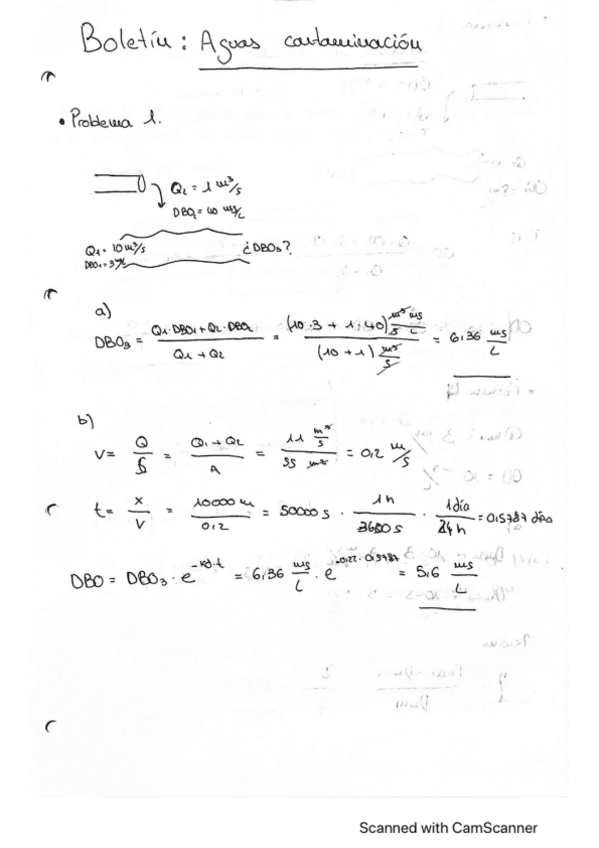 Boletín: Aguas contaminación
• Problema 1.
Q2 = 1 m³/s
DBO2 = 40 mg/L
Q1 = 10 m³/s
DBO1 = 3 mg/L
¿DBO3?
a)
DBO3 = (Q1·DBO1 + Q2·DBO2) / (Q1 + Q2) = (10·3 + 1·40) m³/s mg/L / (10 + 1) m³/s = 6,36 mg/L
b)
V = Q/S = (Q1 + Q2)/A = 11 m³/s / 55 m² = 0,2 m/s
t = x/V = 10000 m / 0,2 = 50000 s · 1h / 3600 s · 1día / 24 h = 0,5787 días
DBO = DBO3 · e^(-Kd·t) = 6,36 mg/L · e^(-0,22·0,5787) = 5,6 mg/L
Scanned with CamScanner